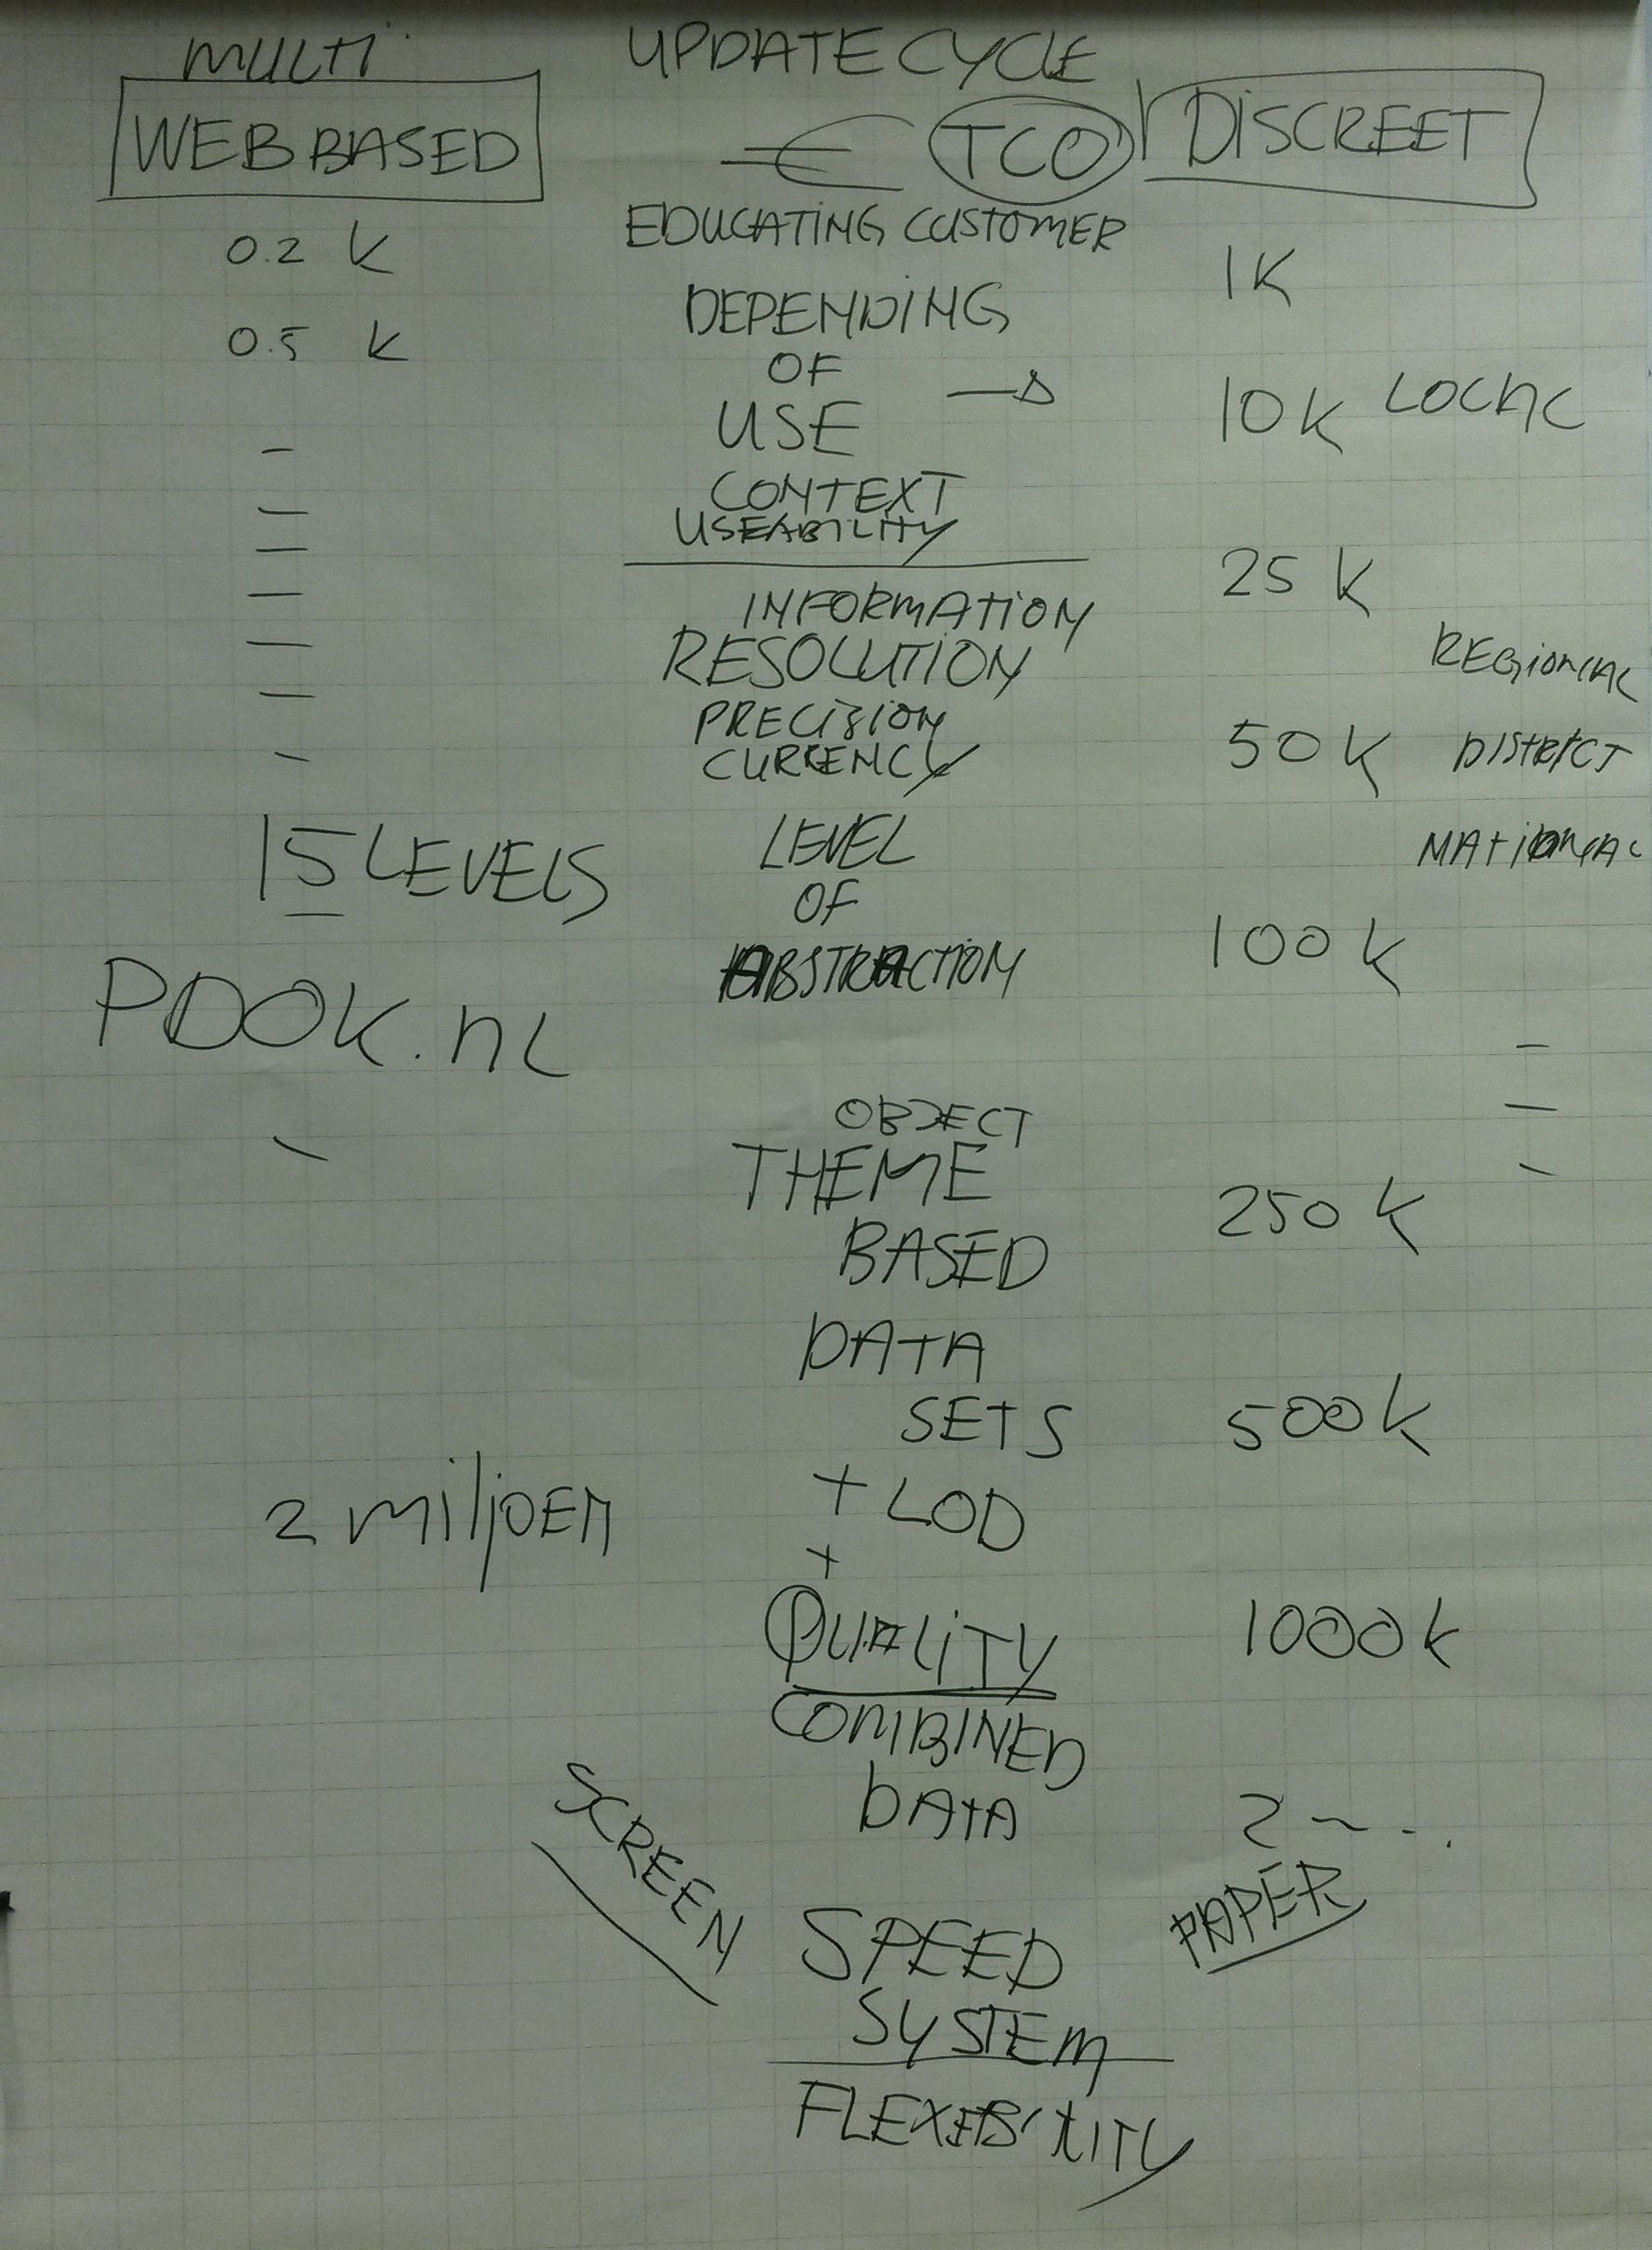 MULTI
WEB BASED
0.2 K
0.5 K
-
-
-
-
-
-
-
15 LEVELS
PDOK.nL
-
2 miljOEN
SCREEN
UPDATE CYCLE
€ TCO
EDUCATING CUSTOMER
DEPENDING
OF
USE
CONTEXT
USEABILITY
INFORMATION
RESOLUTION
PRECISION
CURRENCY
LEVEL
OF
ABSTRACTION
OBJECT
THEME
BASED
DATA
SETS
+ LOD
+
QUALITY
COMBINED
DATA
SPEED
SYSTEM
FLEXIBILITY
DISCREET
1K
10K LOCAL
25 K
REGIONAL
50 K DISTRICT
NATIONAL
100 K
-
-
-
250 K
500 K
1000 K
2 ~ - .
PAPER